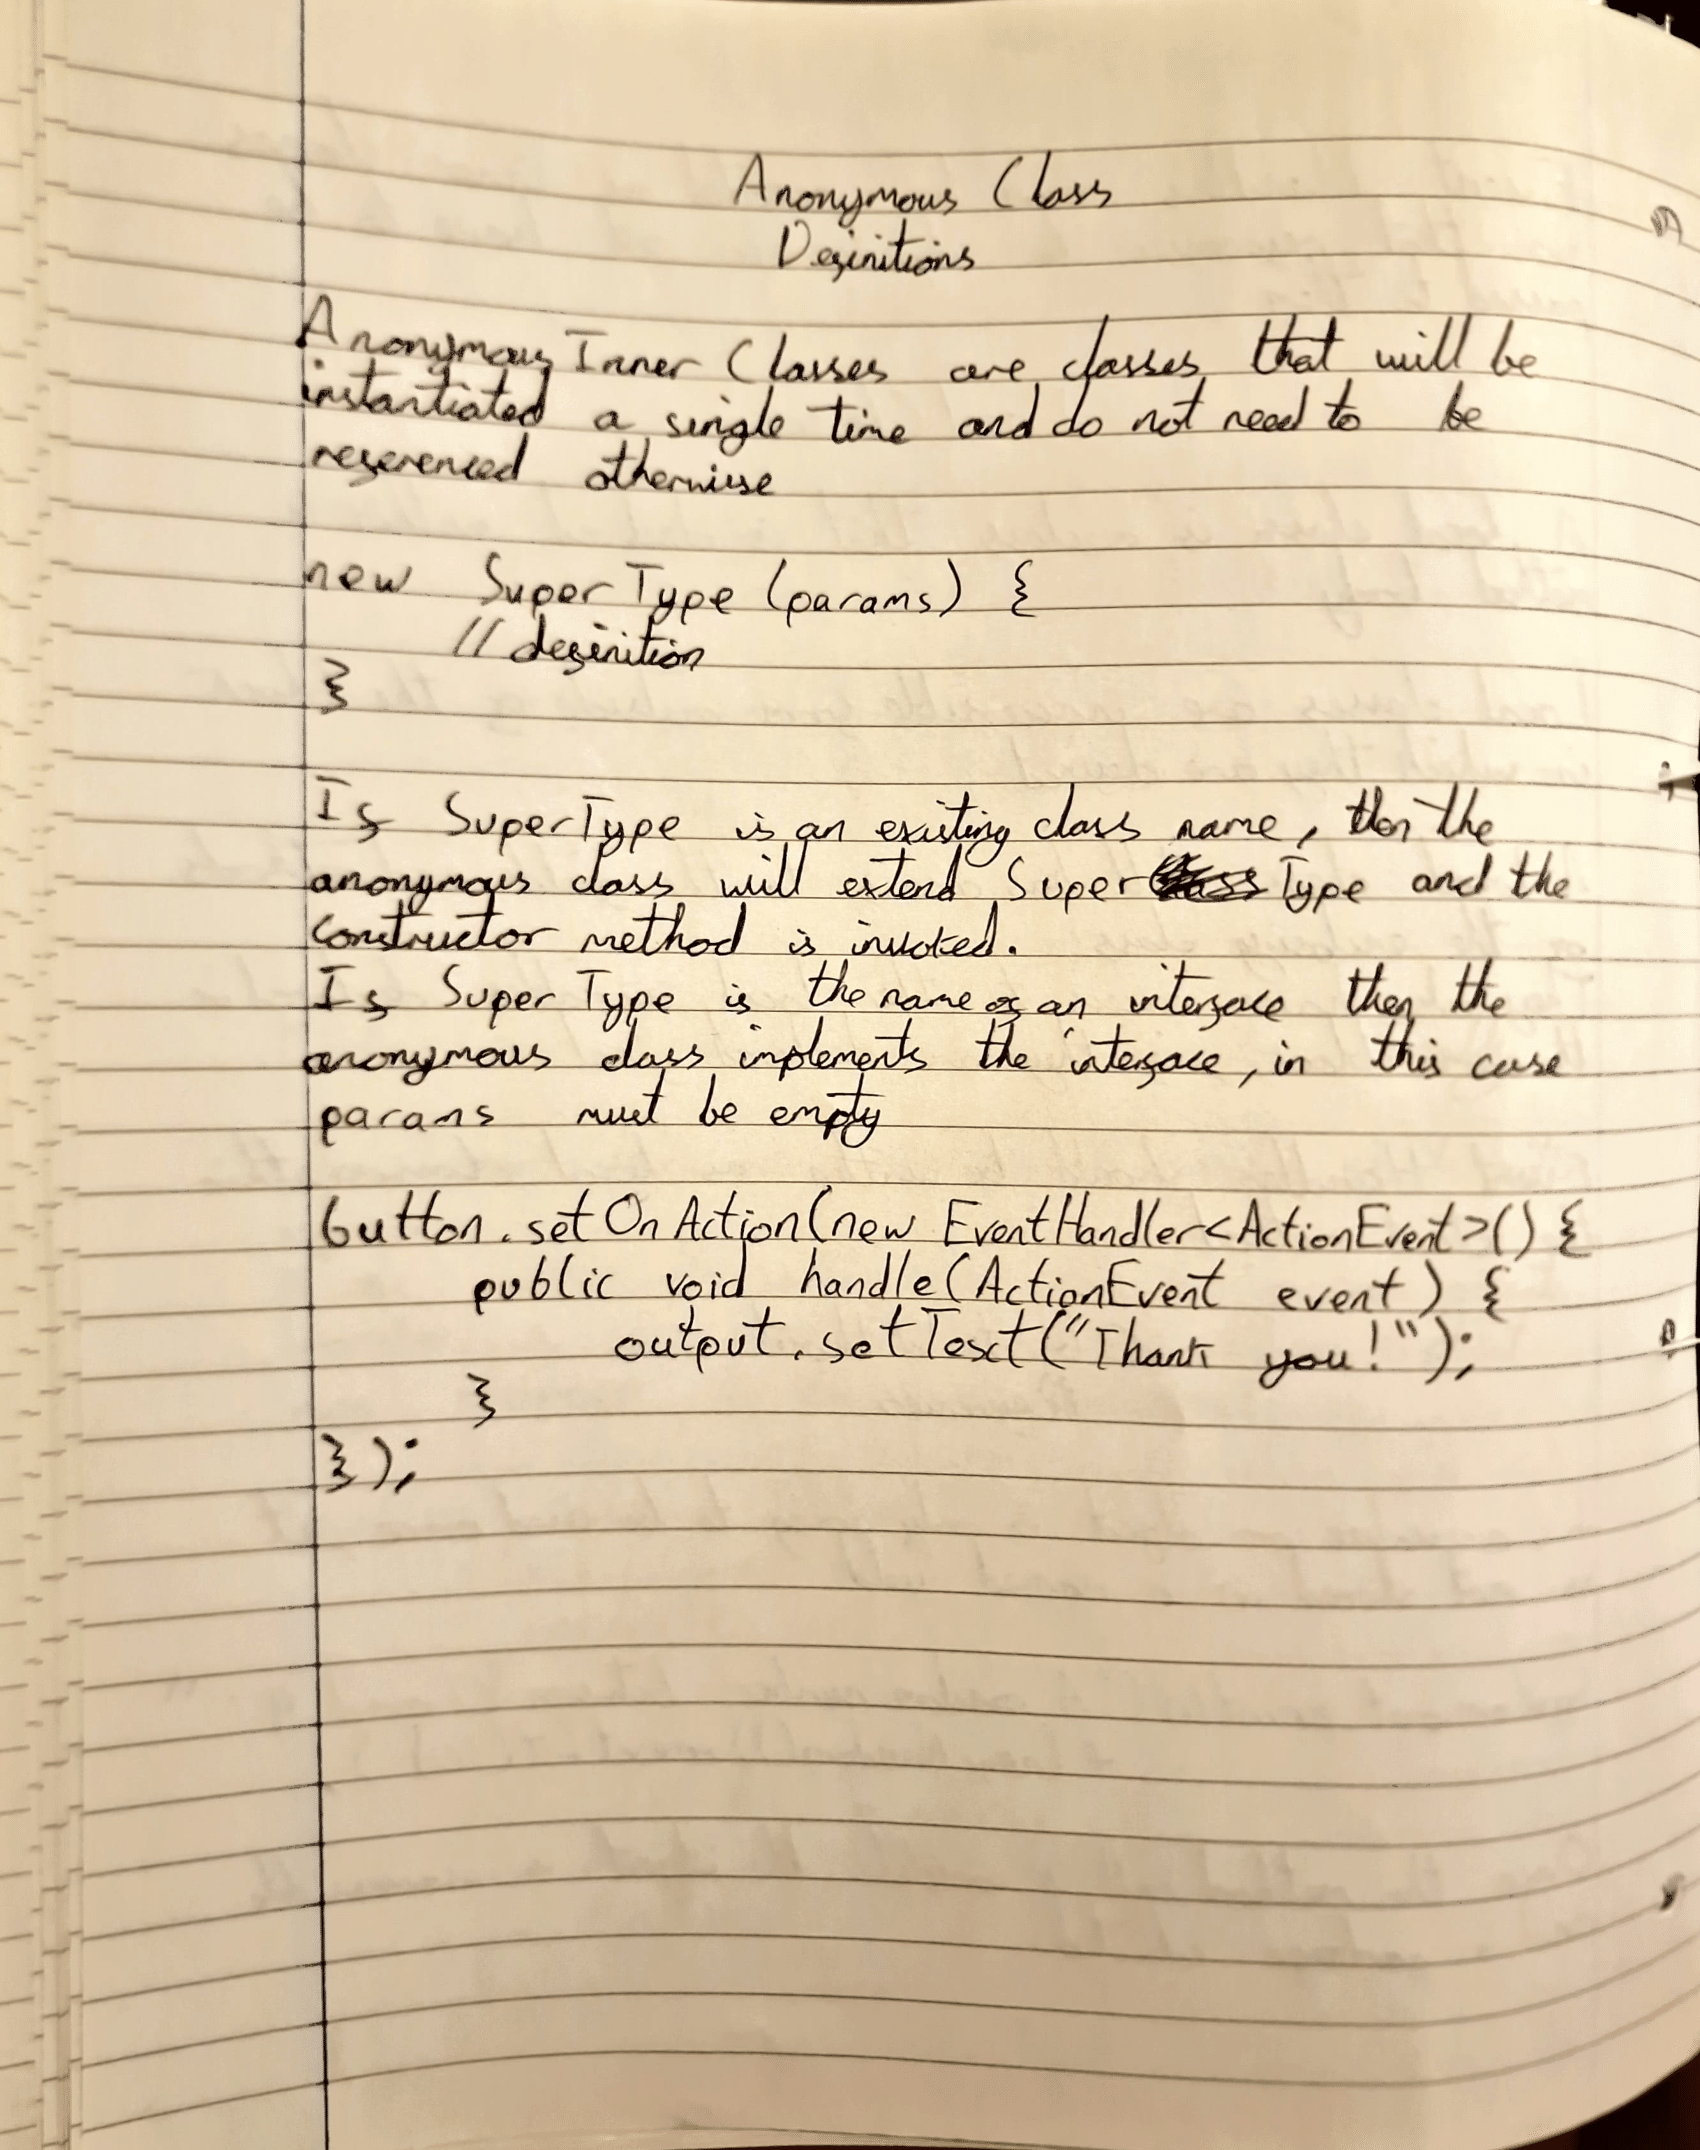 Anonymous Class
Definitions
Anonymous Inner Classes are classes that will be
instantiated a single time and do not need to be
referenced otherwise
new SuperType (params) {
// definition
}
If SuperType is an existing class name, then the
anonymous class will extend SuperType and the
constructor method is invoked.
If SuperType is the name of an interface then the
anonymous class implements the interface, in this case
params must be empty
button.setOnAction(new EventHandler<ActionEvent>() {
public void handle(ActionEvent event) {
output.setText("Thank you!");
}
});